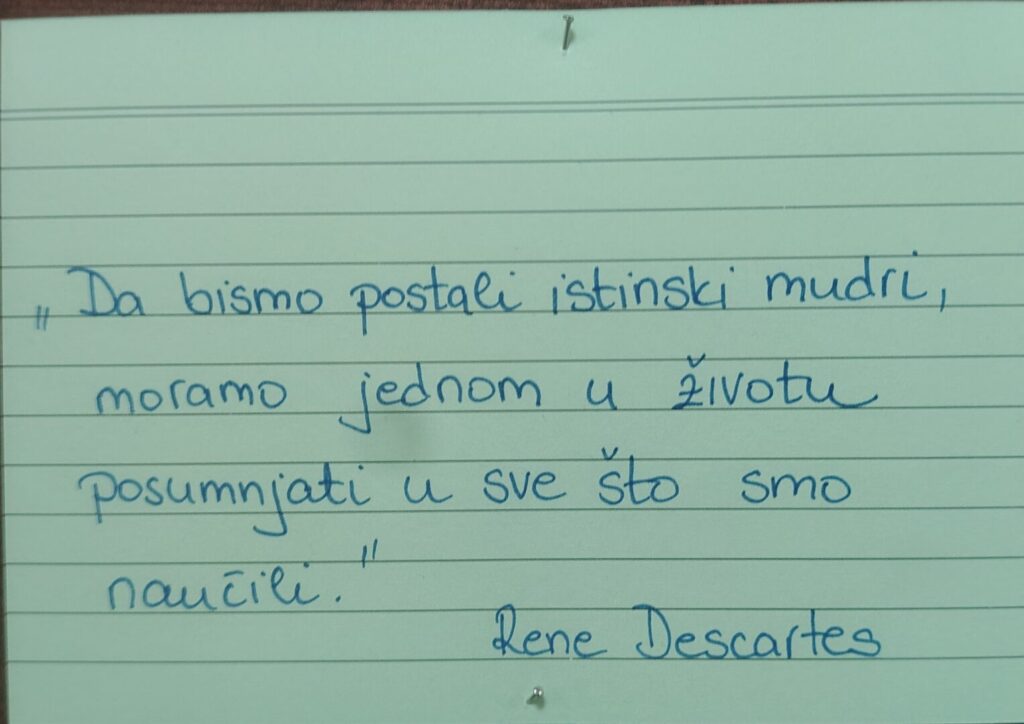 „Da bismo postali istinski mudri,
moramo jednom u životu
posumnjati u sve što smo
naučili."
Rene Descartes